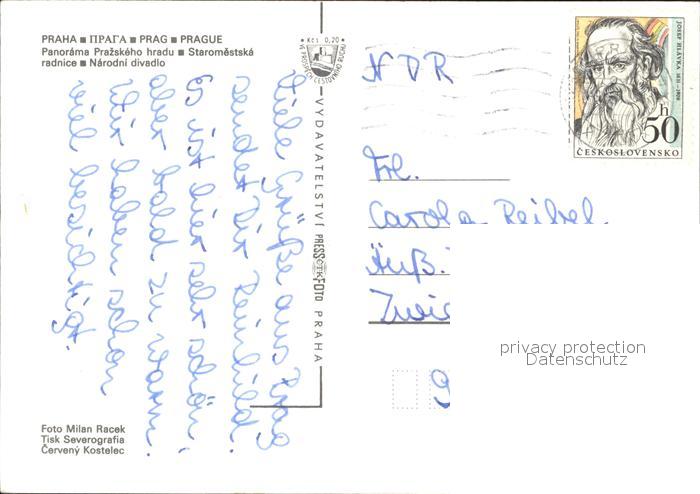 PRAHA ■ ПРАГА ■ PRAG ■ PRAGUE
Panoráma Pražského hradu ■ Staroměstská
radnice ■ Národní divadlo
Kčs 0,20
VE PROSPĚCH CESTOVNÍHO RUCHU
VYDAVATELSTVÍ PRESSFOTO PRAHA
Viele Grüße aus Prag
sendet Dir
Es ist hier sehr schön,
aber bald zu warm.
Wir haben schon
viel besichtigt.
NDR
Frl.
Carola
Äuß.
Zwic
9
JOSEF HLÁVKA 1831-1908
50 h
ČESKOSLOVENSKO
privacy protection
Datenschutz
Foto Milan Racek
Tisk Severografia
Červený Kostelec